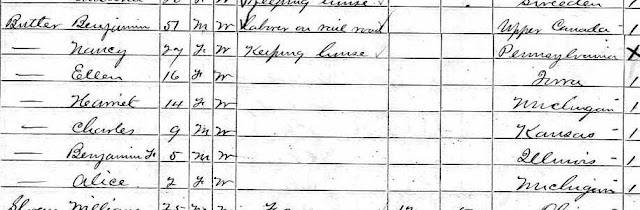 Keeping house Sweeden
Butler Benjamin 51 M W Laborer on rail road Upper Canada 1
— Nancy 27 F W Keeping house Pennsylvania X
— Ellen 16 F W Iowa 1
— Harriet 14 F W Michigan 1
— Charles 9 M W Kansas 1
— Benjamin F 5 M W Illinois 1
— Alice 2 F W Michigan 1
William